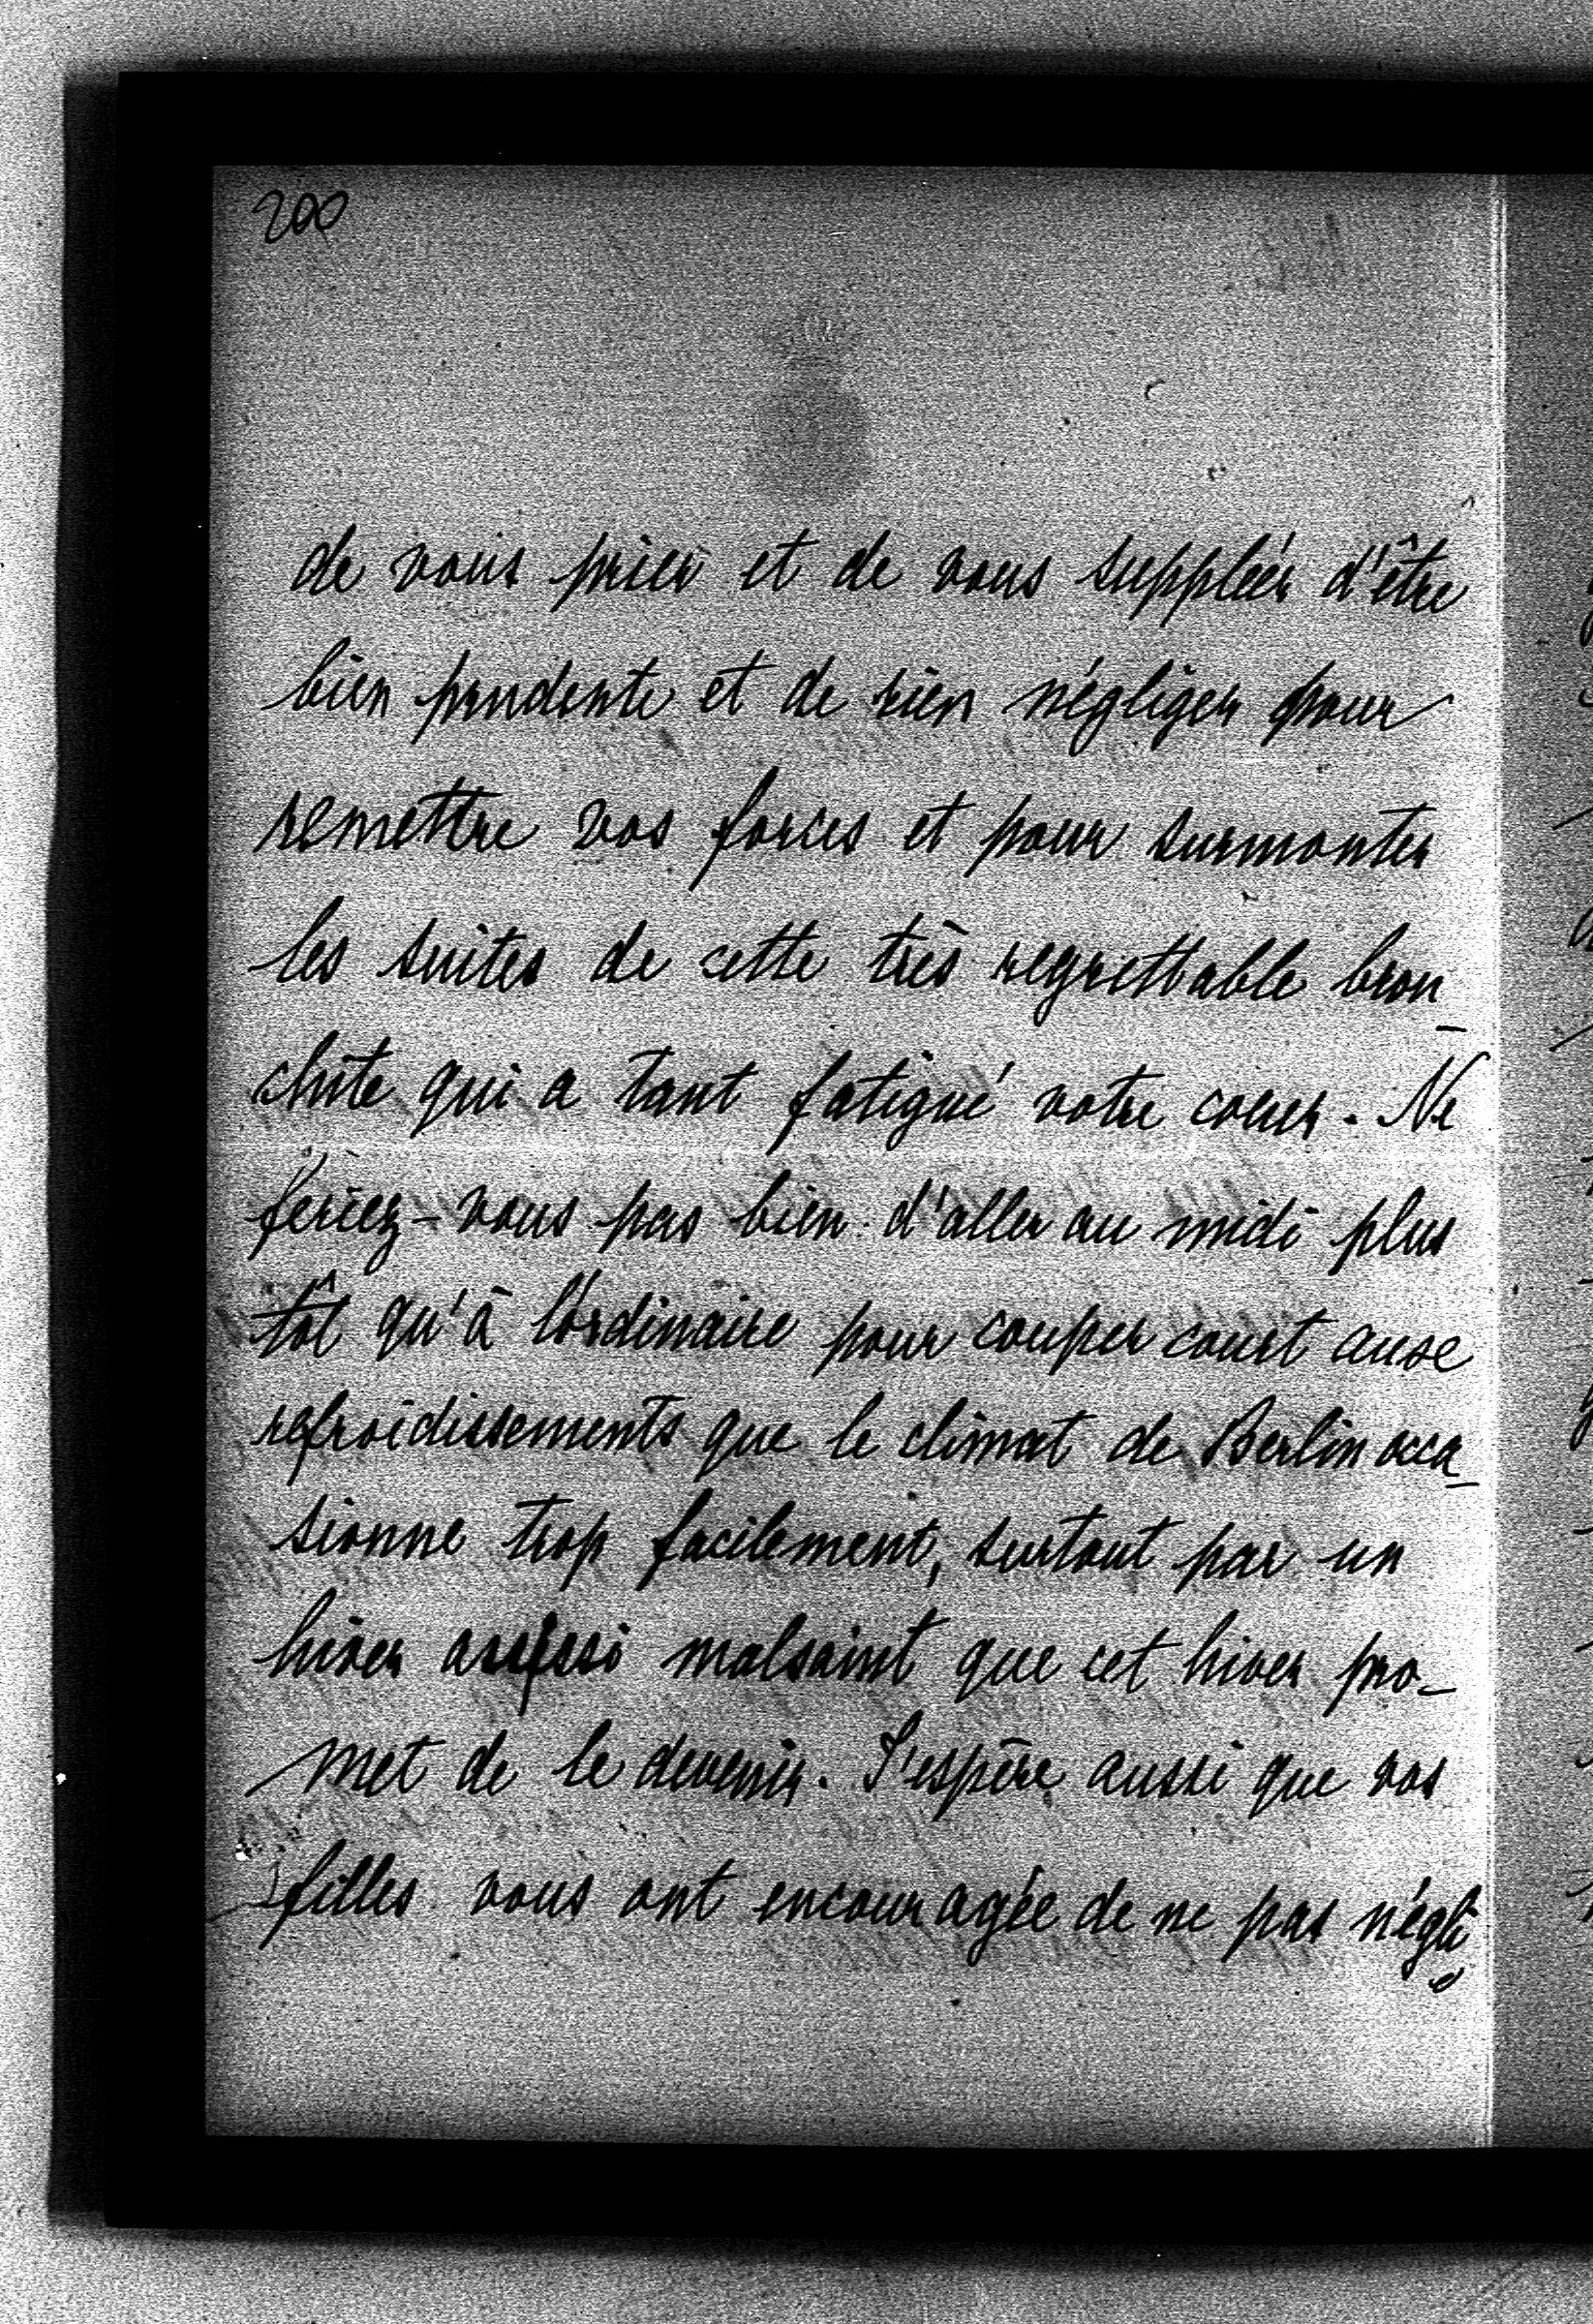 200
de vous prier et de vous suppléer d'être
bien prudente et de rien négliger pour
remettre vos forces et pour surmonter
les suites de cette très regrettable bron_
chite qui a tant fatigué votre coeur. Ne
feriez-vous pas bien d'aller au midi plus
tôt qu'à l'ordinaire pour couper court aux
refroidissements que le climat de Berlin occa_
sionne trop facilement, surtout par un
hiver aussi malsaint que cet hiver pro_
met de le devenir. J'espère aussi que vos
filles vous ont encouragée de ne pas négli